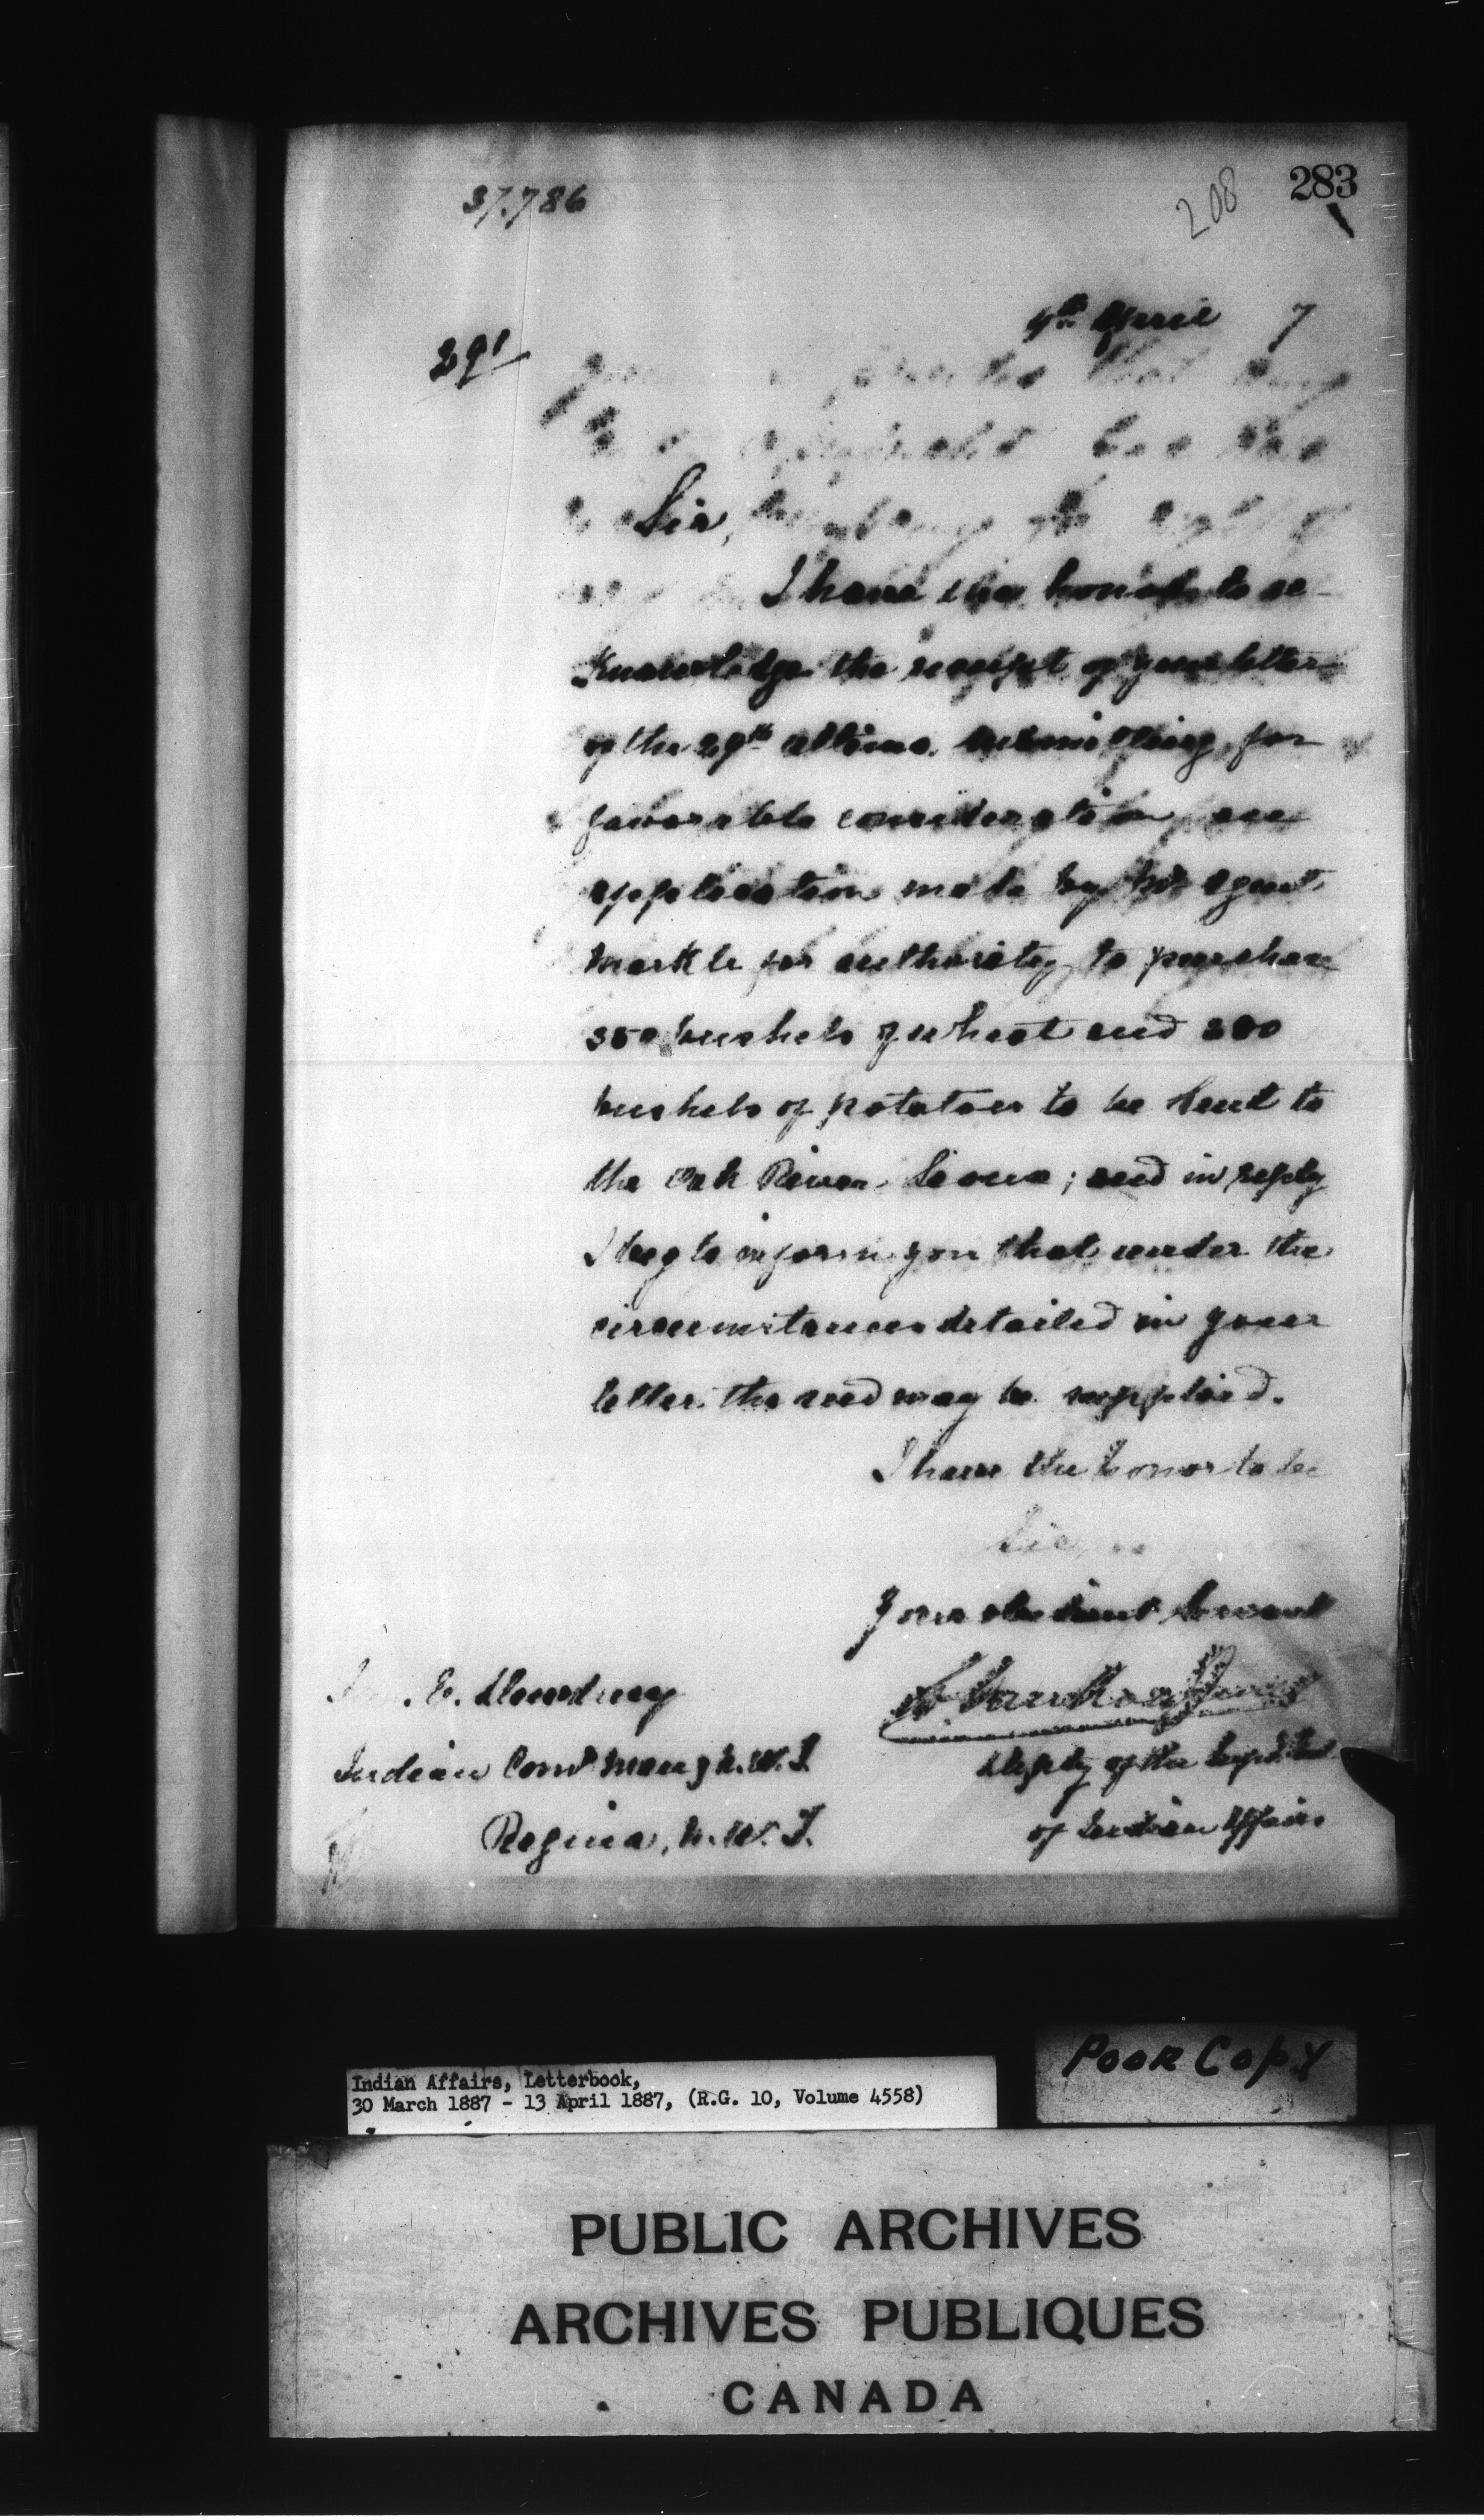 283
208
37.786
4th April 7
291
Sir,
I have the honor to ac-
knowledge the receipt of your letter
of the 29th ultimo, submitting, for
favorable consideration, an
application made by Mr Agent
Markle for authority to purchase
350 bushels of wheat and 200
bushels of potatoes to be lent to
the Oak River Sioux; and in reply
I beg to inform you that under the
circumstances detailed in your
letter the seed may be supplied.
I have the honor to be
Sir,
Your obedient Servant
L. Vankoughnet
Deputy of the Supt. Genl
of Indian Affairs
E. Dewdney
Indian Comr Man & N.W.T.
Regina, N.W.T.
Poor Copy
Indian Affairs, Letterbook,
30 March 1887 - 13 April 1887, (R.G. 10, Volume 4558)
PUBLIC ARCHIVES
ARCHIVES PUBLIQUES
CANADA